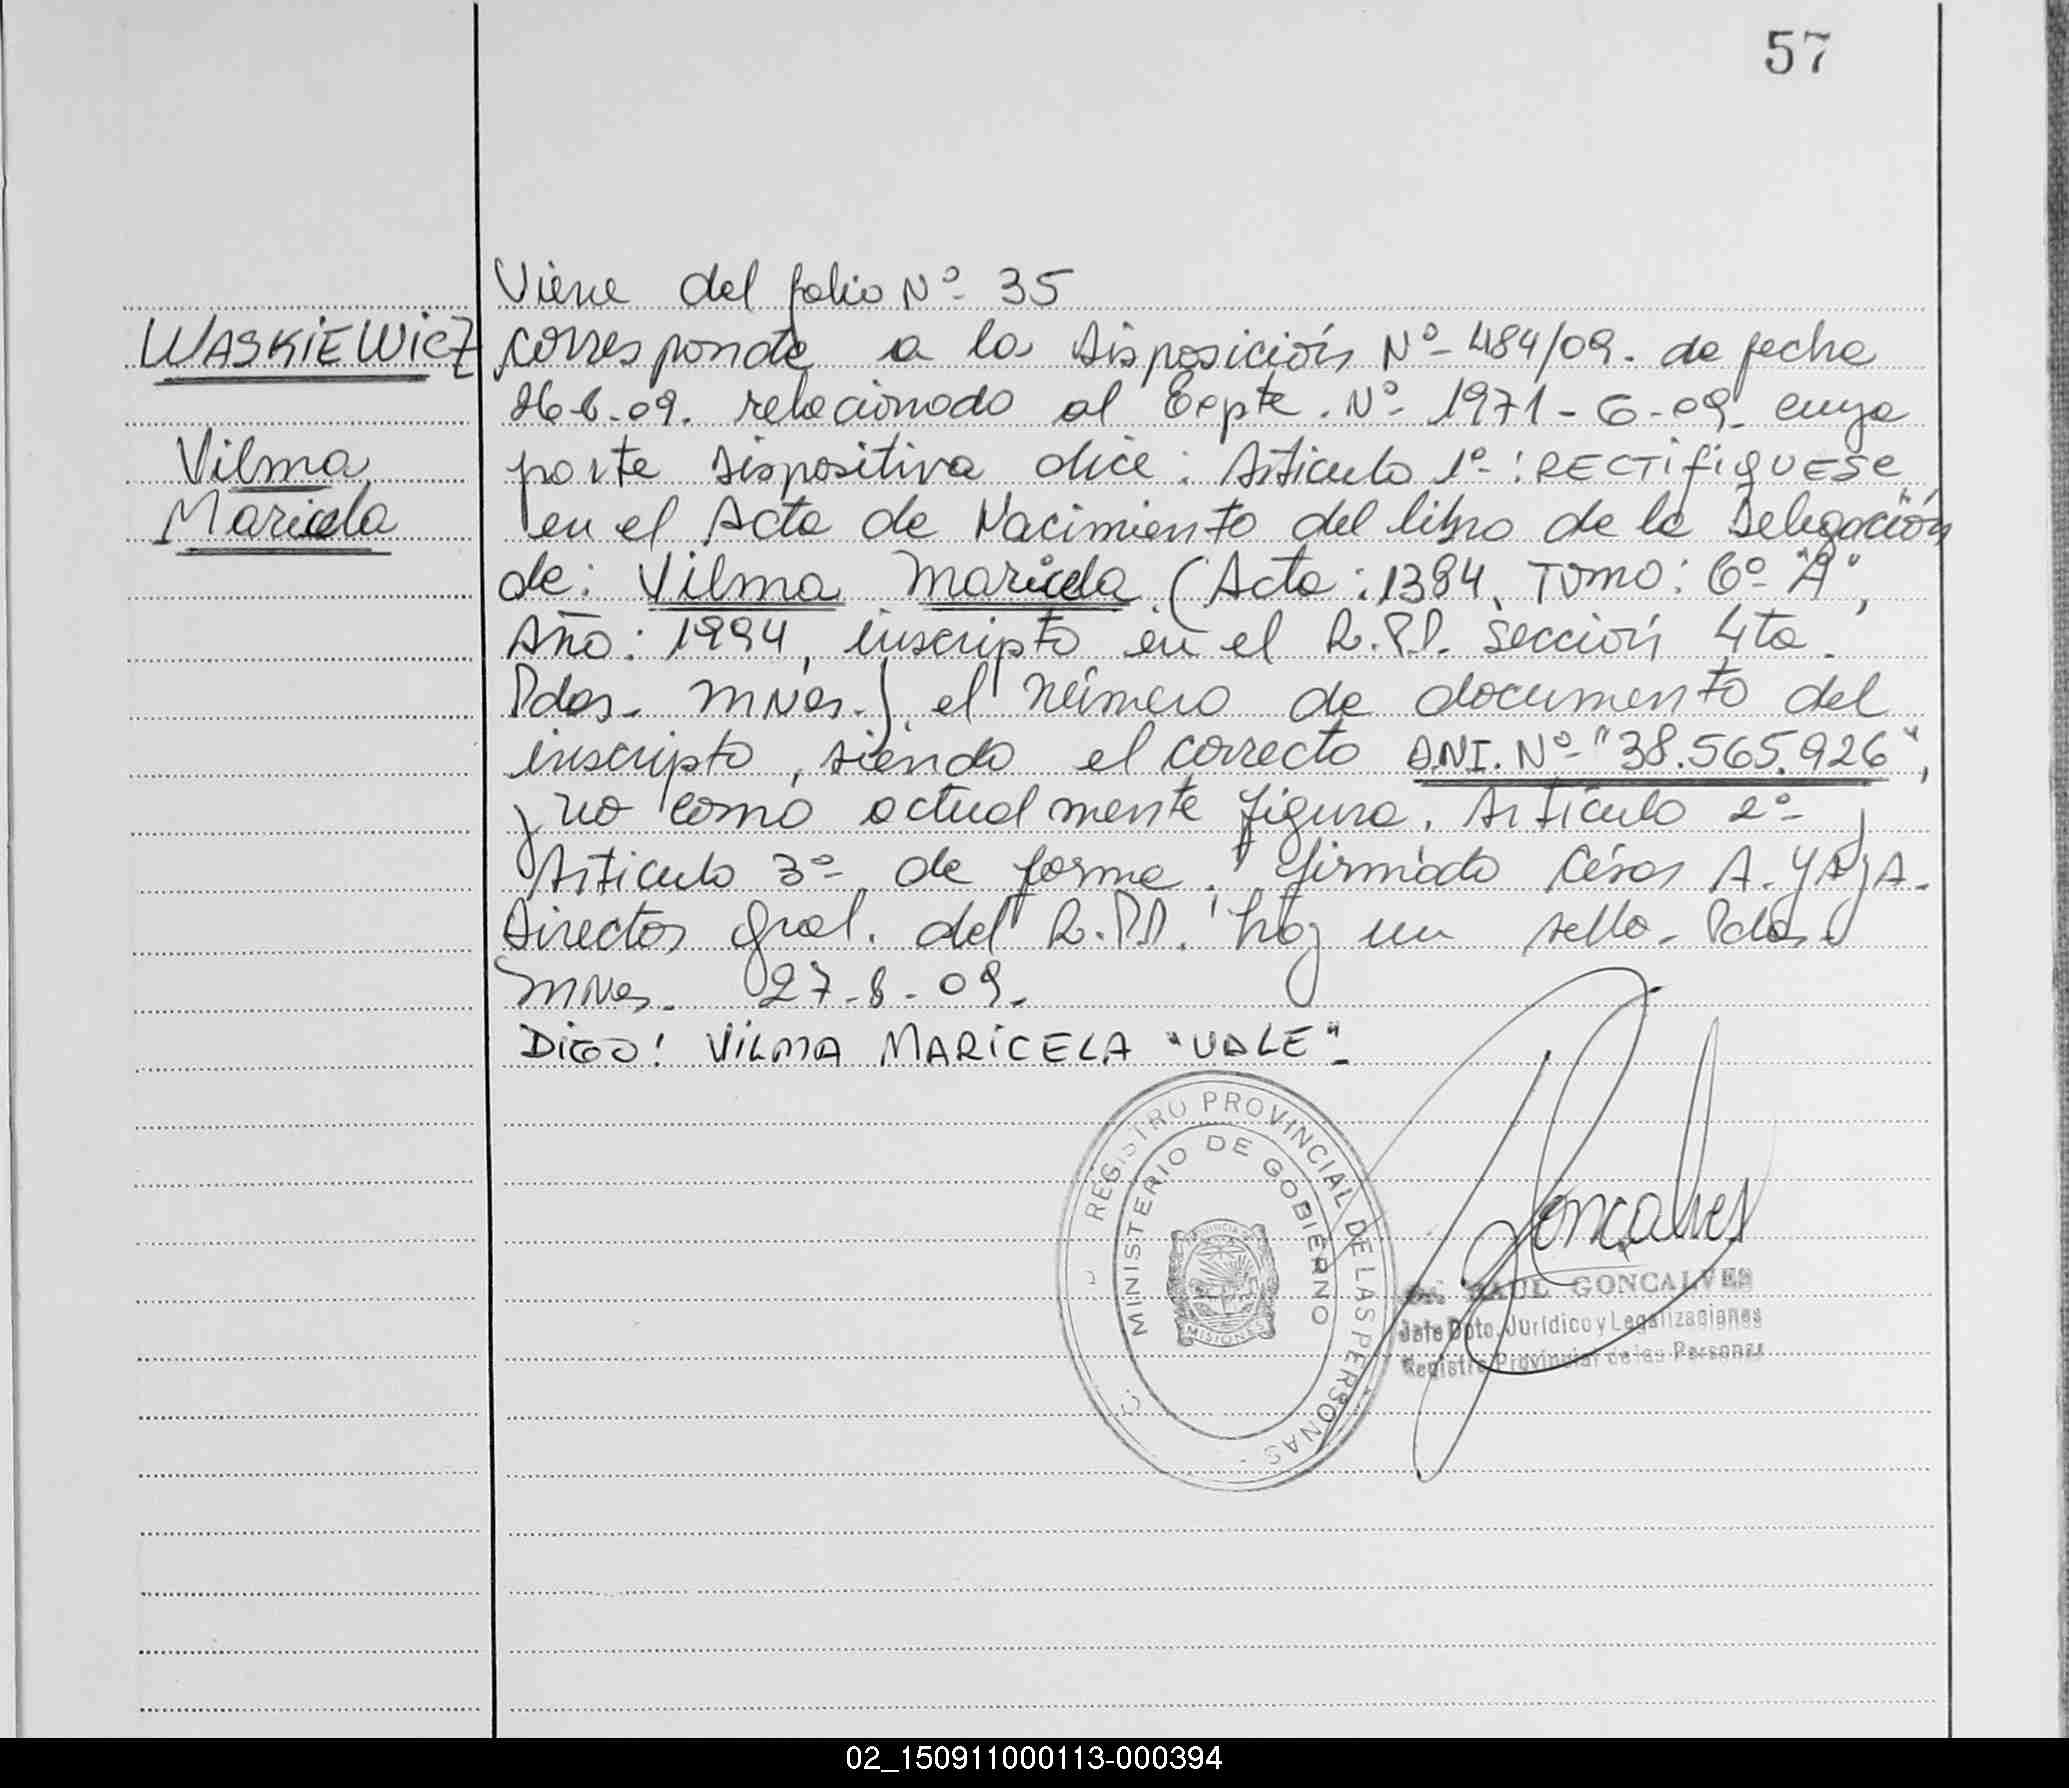 57
Viene del folio Nº 35
WASKIEWICZ
corresponde a la Disposición Nº 484/09. de fecha
26-8-09. relacionado al Expte. Nº 1971-G-09. cuya
Vilma
parte dispositiva dice: Articulo 1º: RECTIFIQUESE
Maricela
en el Acta de Nacimiento del libro de la Delegación
de: Vilma Maricela. (Acta: 1384, Tomo: 6º "A",
Año: 1994, inscripto en el R.P.P. sección 4ta.
Pdas. Mnes.) el número de documento del
inscripto, siendo el correcto D.N.I. Nº "38.565.926",
y no como actualmente figura. Articulo 2º y
Articulo 3º de forme. firmado César A. YAYA.
Director Gral. del R.P.P. hay un sello. Pdas.
Mnes. 27-8-09.
DIGO: VILMA MARICELA "VALE".
REGISTRO PROVINCIAL DE LAS PERSONAS
MINISTERIO DE GOBIERNO
PROVINCIA
MISIONES
Goncalves
Dr. RAUL GONCALVES
Jefe Dpto. Jurídico y Legalizaciones
Registro Provincial de las Personas
02_150911000113-000394